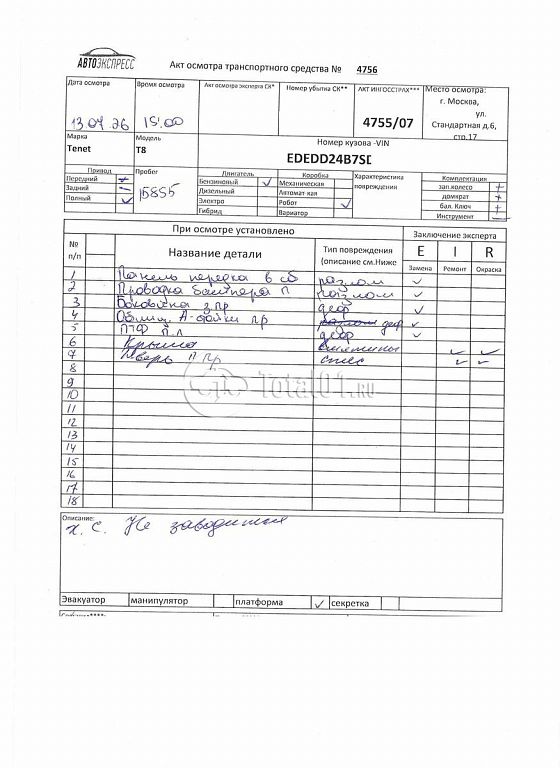 АВТОЭКСПРЕСС
Акт осмотра транспортного средства № 4756
Дата осмотра
Время осмотра
Акт осмотра эксперта СК*
Номер убытка СК**
АКТ ИНГОССТРАХ***
Место осмотра:
г. Москва,
ул.
Стандартная д.6,
стр.17
13.07.26
15:00
4755/07
Марка
Модель
Номер кузова -VIN
Tenet
T8
EDEDD24B7SD
Привод
Пробег
Двигатель
Коробка
Характеристика
повреждения
Комплектация
Передний
Задний –
Полный ✓
15855
Бензиновый ✓
Дизельный
Электро
Гибрид
Механическая
Автомат-кая
Робот ✓
Вариатор
зап.колесо +
домкрат +
бал. Ключ +
Инструмент –
№
п/п
При осмотре установлено
Заключение эксперта
Название детали
Тип повреждения
(описание см.Ниже
E
I
R
Замена
Ремонт
Окраска
1 Панель передка в сб разлом ✓
2 Проводка бампера п разлом ✓
3 Боковина з пр деф ✓
4 Облиц. А-стойки пр деф ✓
5 ПТФ п.л деф ✓
6 Крыша ✓ ✓
7 Дверь п пр ✓ ✓
8
9
10
11
12
13
14
15
16
17
18
Total01.RU
Описание:
х. с. Не заводится
Эвакуатор
манипулятор
платформа ✓
секретка